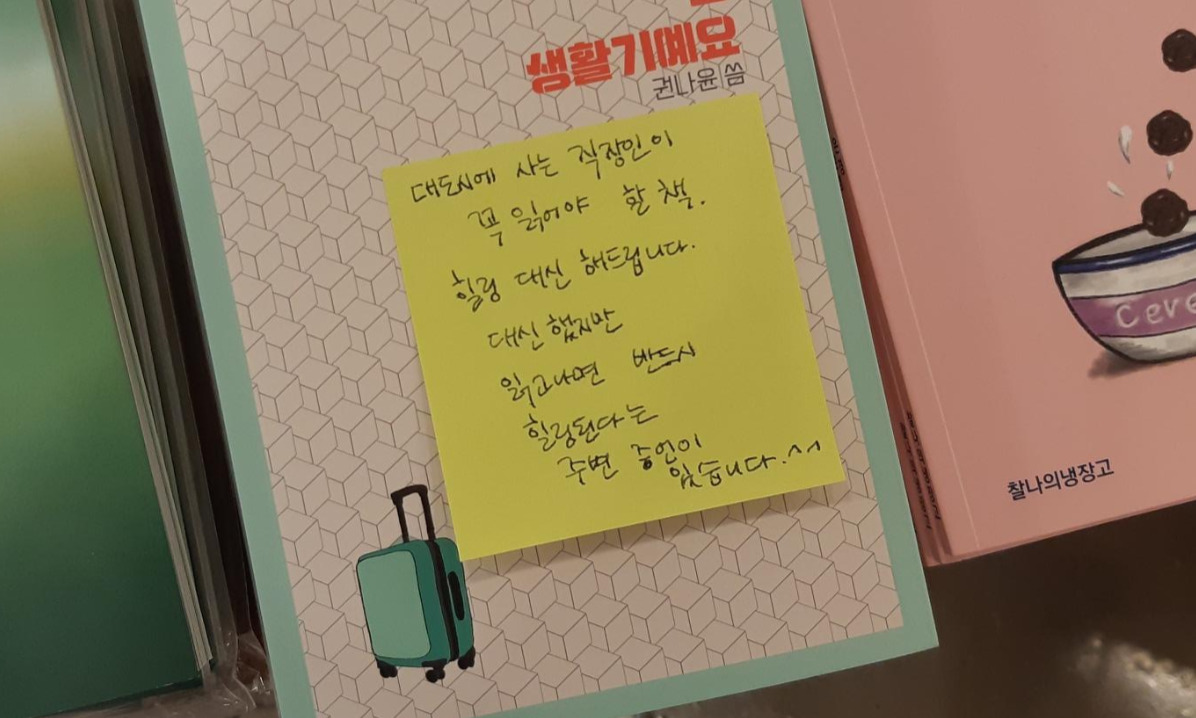 생활기예요
권나윤 씀
대도시에 사는 직장인이
꼭 읽어야 할 책.
힐링 대신 해드립니다.
대신 했지만
읽고나면 반드시
힐링된다는
주변 증언이
있습니다.^^
Cere
찰나의냉장고